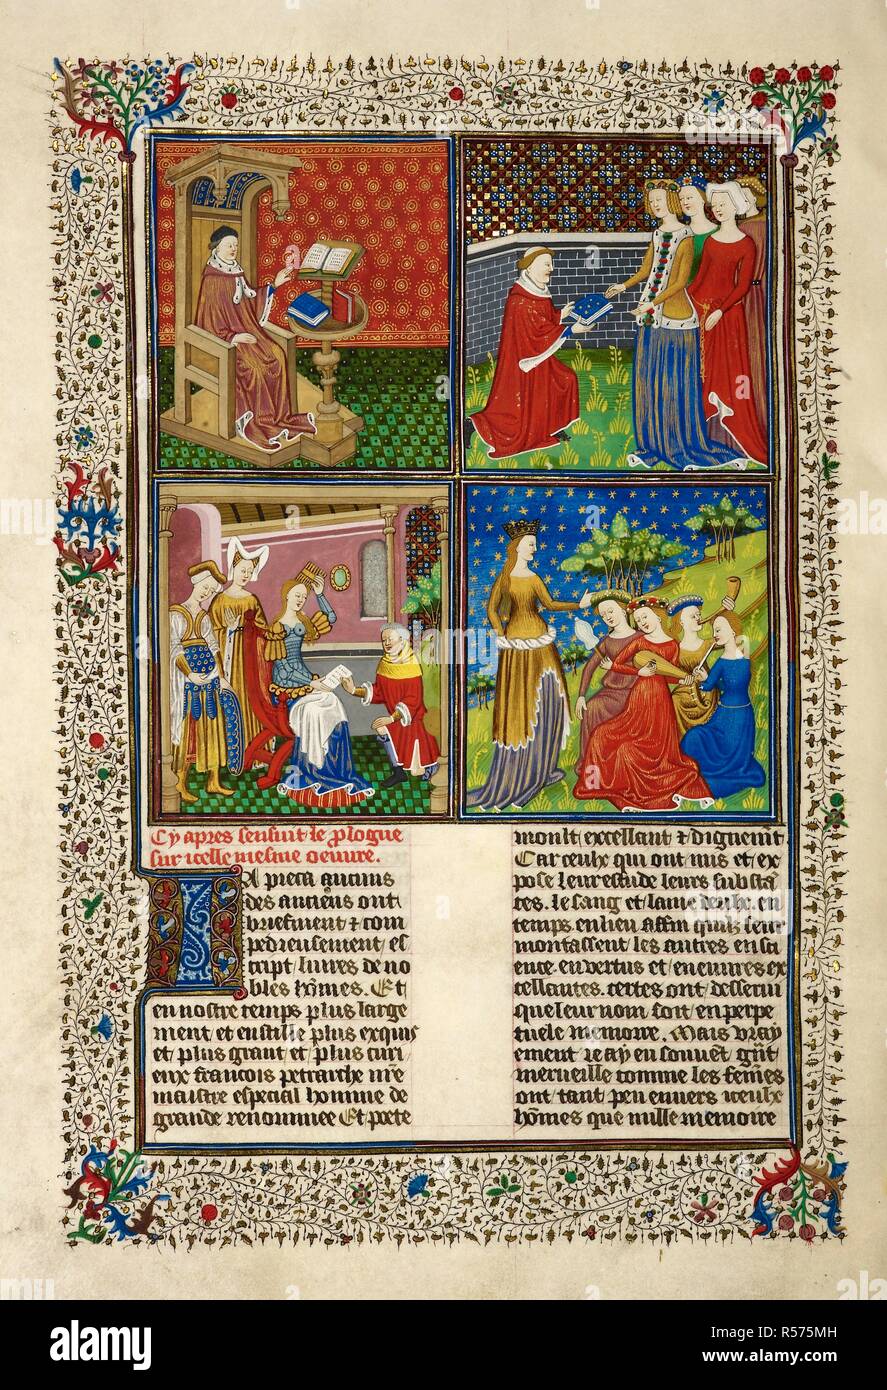 Cy apres sensuit le prologue
sur icelle mesme oeuvre.
IA pieca aucuns
des anciens ont
briefment & com
pedieusement es
cript livres de no
bles hõmes. Et
en nostre temps plus large
ment et en stille plus exquis
et plus grant et plus curi
eux francois petrarche nr̃e
maistre especial homme de
grande renommee Et poete
moult excellant & dignemẽt
Car ceulx qui ont mis et ex
pose leur estude leurs substã
ces. le sang et lame deulx. en
temps en lieu affin quilz seur
montassent les autres en sci
ence. en vertus et en euvres ex
cellantes. certes ont desservi
que leur nom soit en perpe
tuele memoire. Mais vray
ement ie ay en souvẽt grãt
merveille comme les fem̃es
ont tant peu envers iceulx
hõmes que nulle memoire
alamy
Image ID: R575MH
www.alamy.com